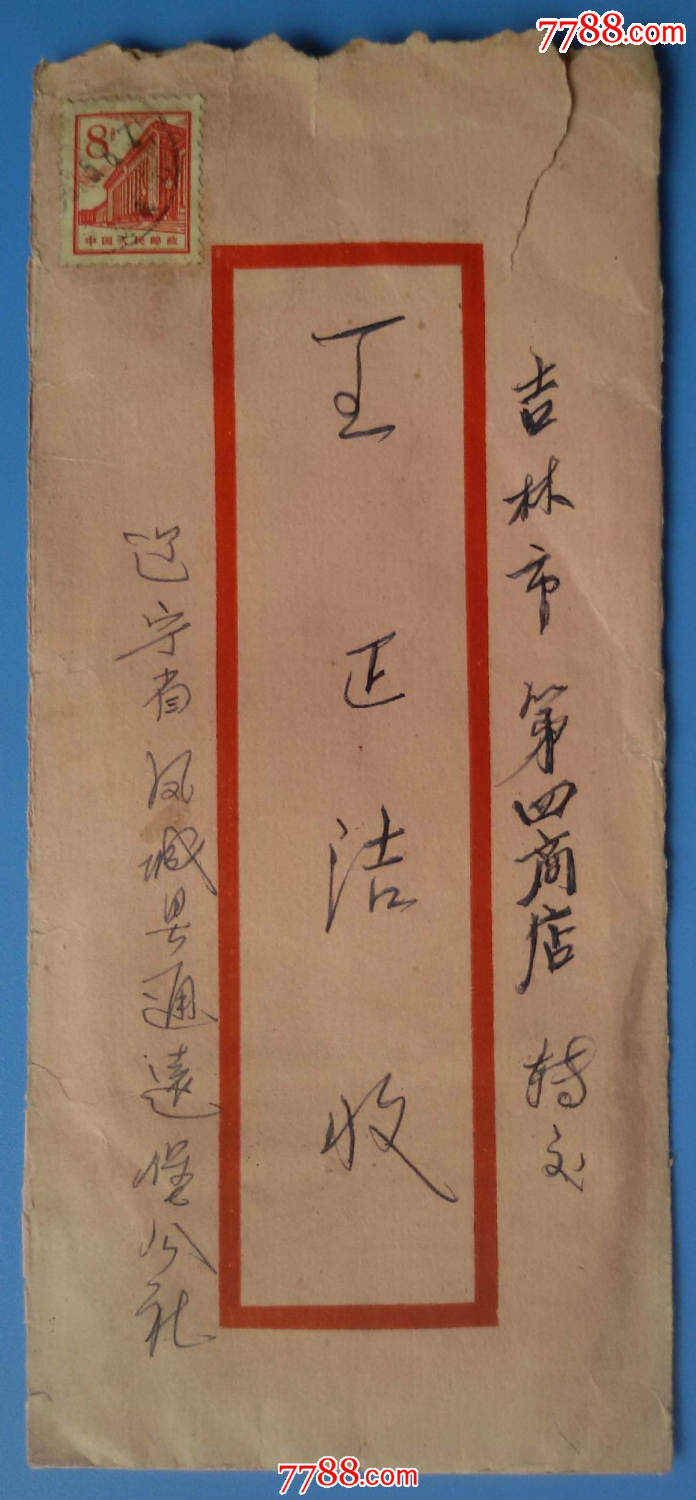 7788.com
8分
中国人民邮政
吉林市第四商店 转交
王正洁收
辽宁省凤城县通远堡公社
7788.com